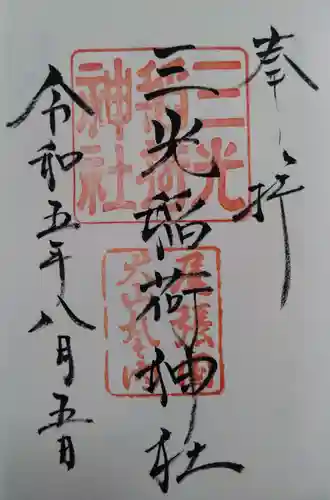 奉拝
三光稲荷神社
三光
稲荷
神社
令和五年八月五日